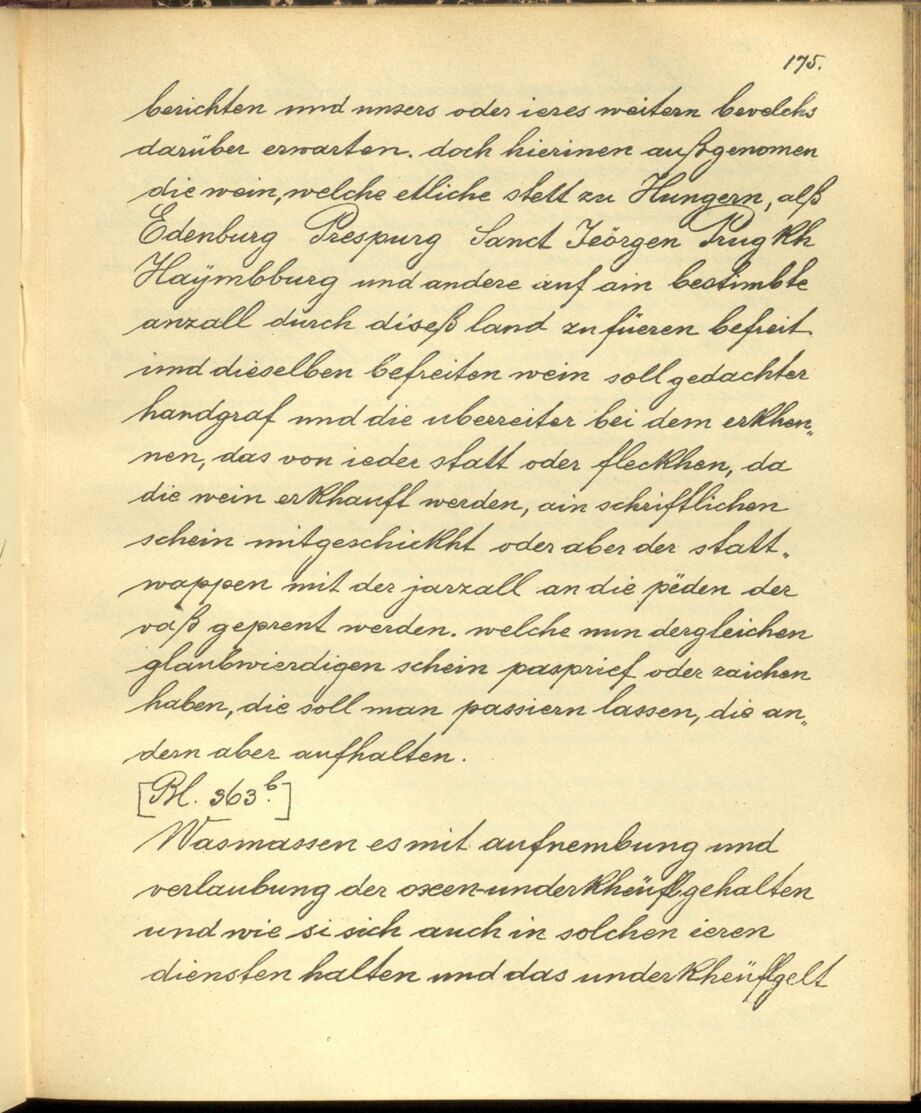 175.
berichten und unsers oder ieres weitern bevelchs
darüber erwarten. doch hierinen außgenomen
die wein, welche etliche stett zu Hungern, alß
Edenburg Prespurg Sanct Jeörgen Prugkh
Haÿmbburg und andere auf ain bestimbte
anzall durch diseß land zu füeren befreit
und dieselben befreiten wein soll gedachter
handgraf und die uberreiter bei dem erkhen„
nen, das von ieder statt oder fleckhen, da
die wein erkhauft werden, ain schriftlichen
schein mitgeschickht oder aber der statt„
wappen mit der jarzall an die pëden der
vaß geprent werden. welche nun dergleichen
glaubwierdigen schein pasprief oder zaichen
haben, die soll man passiern lassen, die an„
dern aber aufhalten.
[Bl. 363b.]
Wasmassen es mit aufnembung und
verlaubung der oxen-underkheüfl gehalten
und wie si sich auch in solchen ieren
diensten halten und das underkheüflgelt